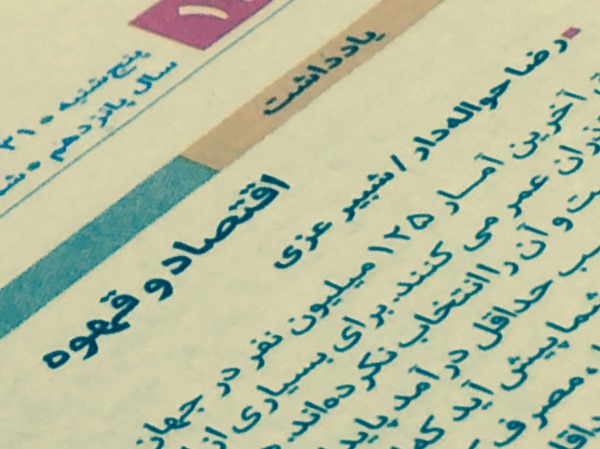 پنج‌شنبه ۳۱
سال پانزدهم
یادداشت
اقتصاد و قهوه
رضا حواله‌داد / شبیر عزی
آخرین آمار ۱۲۵ میلیون نفر در جهان
عمر می کنند. برای بسیاری از
و آن را انتخاب نکرده‌اند
حداقل درآمد پایدا
شما پیش آید که
مصرف